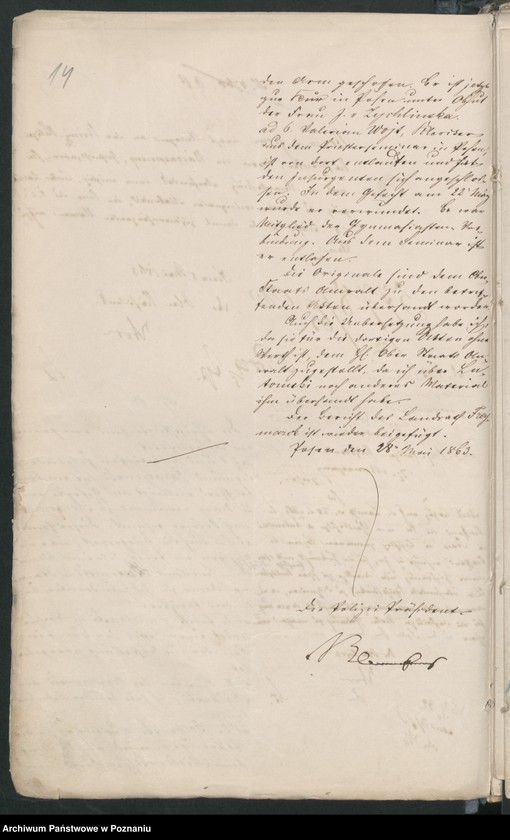 14
den Arm geschossen. Er ist jetzt
zur Kur in Posen unter Obhut
der Frau J. v Zychlinska.
ad 6. Valerian Wojt, Kleriker
aus dem Priesterseminar in Posen,
ist von dort entlaufen und hat
den Insurgenten sich angeschlos-
sen. In dem Gefecht am 22t
wurde er verwundet. Er war
Mitglied der Gymnasiasten Ver-
bindung. Aus dem Seminar ist
er entlassen.
Die Originale sind dem Ober
Staats Anwalt zu den betref-
fenden Akten übersandt worden.
Auch die Uebersetzung habe ich,
da sie für die dortigen Akten ohne
Werth ist, dem H. Ober Staats An-
walt zugestellt, da ich über
noch anderes Material
ihm übersandt habe.
Der Bericht des Landrath Frey-
mark ist wieder beigefügt.
Posen den 28t Mai 1863.
Der Polizei Präsident.
Archiwum Państwowe w Poznaniu